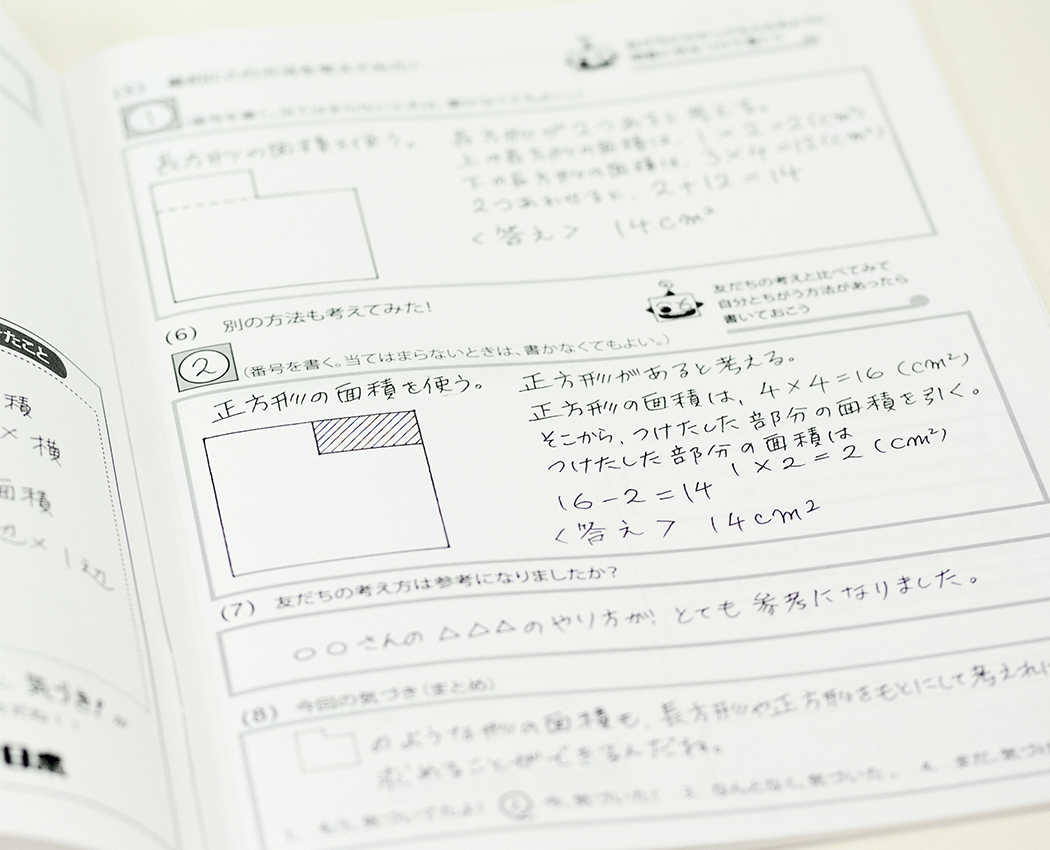 (5) 最初にこの方法を考えてみた!
1
長方形の面積を使う。
長方形が2つあると考える。
上の長方形の面積は、1×2=2(cm²)
下の長方形の面積は、3×4=12(cm²)
2つあわせると、2+12=14
<答え> 14cm²
(6) 別の方法も考えてみた!
友だちの考えと比べてみて
自分とちがう方法があったら
書いておこう
2 (番号を書く。当てはまらないときは、書かなくてもよい。)
正方形の面積を使う。
正方形があると考える。
正方形の面積は、4×4=16(cm²)
そこから、つけたした部分の面積を引く。
つけたした部分の面積は
1×2=2(cm²)
16-2=14
<答え> 14cm²
(7) 友だちの考え方は参考になりましたか?
○○さんの△△△のやり方が、とても参考になりました。
(8) 今回の気づき(まとめ)
のような形の面積も、長方形や正方形をもとにして考えれ
求めることができるんだね。
3. なんとなく、気づいた。 4. まだ、気づ
たこと
積
×横
面積
辺×1辺
気づき!